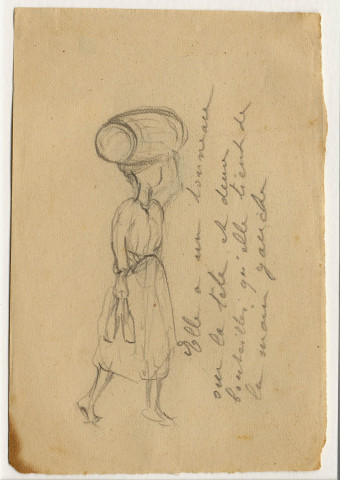 Elle a un tonneau
sur la tête et deux
bouteilles qu'elle tient de
la main gauche